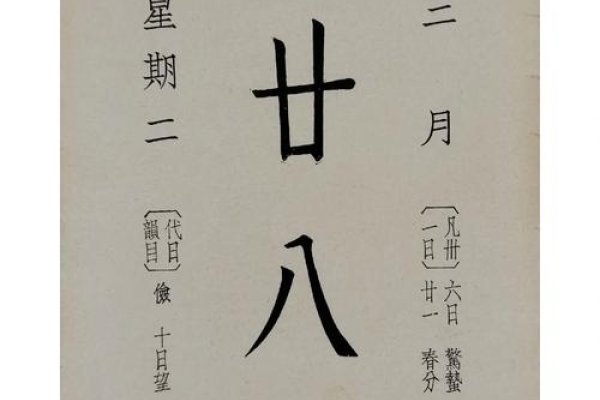 三月
〔凡卅一日〕
六日 驚蟄
廿一 春分
廿八
星期二
〔代日韻目〕 儉 十日望